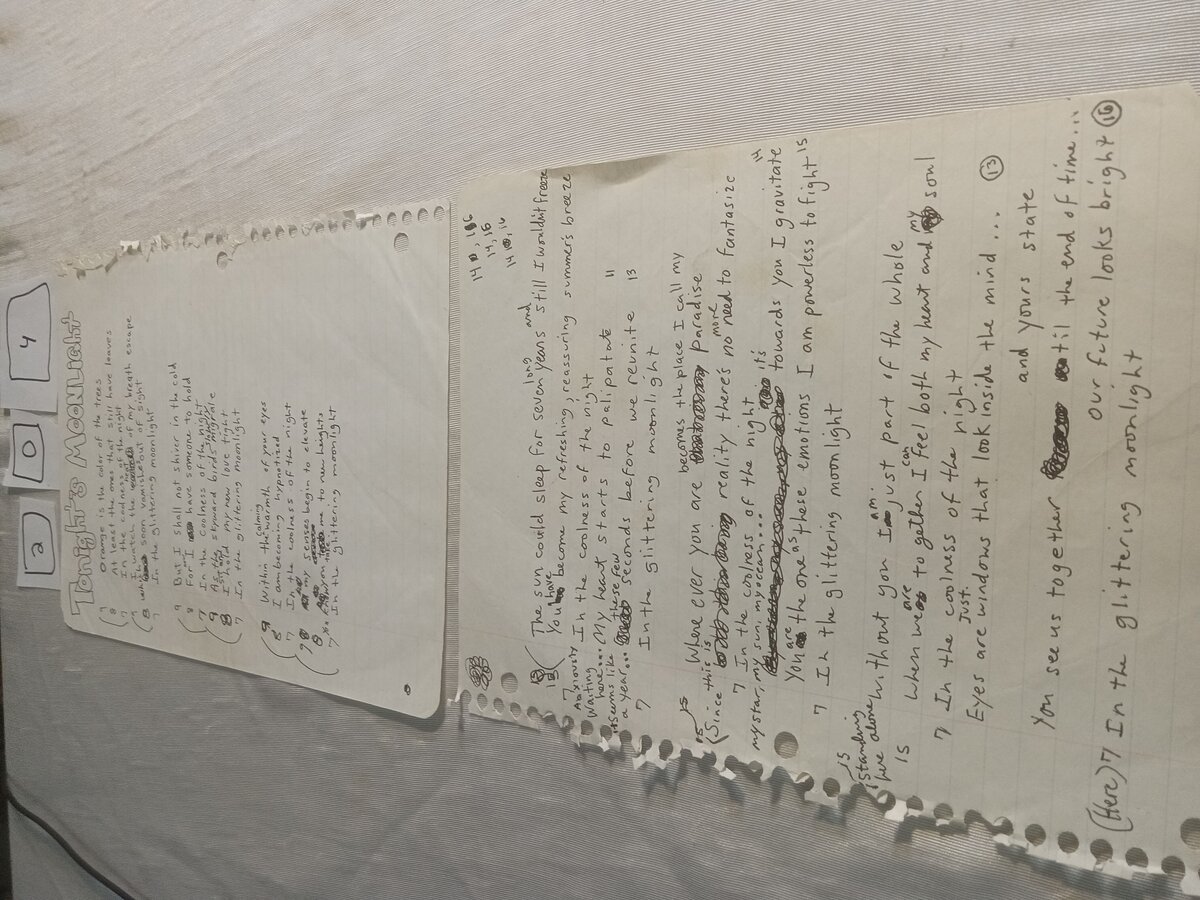 2
0
4
Tonight's Moonlight
9 Orange is the color of the trees
8 At least the ones that still have leaves
7 In the coolness of the night
9 I watch the of my breath escape
8 which soon vanishes out of sight
7 In the glittering moonlight
9 But I shall not shiver in the cold
8 For I have someone to hold
7 In the coolness of the night
9 As the skyward birds migrate
8 I hold my new love tight
7 In the glittering moonlight
calming
9 Within the warmth of your eyes
8 I am becoming hypnotized
7 In the coolness of the night
9 my senses begin to elevate
8 you take me to new heights
7 In the glittering moonlight
14, 16
14, 16
14, 16
long and
The sun could sleep for seven years still I wouldn't freeze
have
You become my refreshing, reassuring summer's breeze
Anxiously In the coolness of the night
Waiting
here... My heart starts to palipatate 11
seems like these few
a year... seconds before we reunite 13
7 In the glittering moonlight
becomes the place I call my
15 15
Where ever you are paradise
more
(Since this is reality there's no need to fantasize
7 In the coolness of the night
my star, my sun, my ocean... it's towards you I gravitate 14
are as
You the one these emotions I am powerless to fight 15
7 In the glittering moonlight
15
Standing
here alone without you I am just part of the whole
are can my
15 When we together I feel both my heart and soul
7 In the coolness of the night
Just
Eyes are windows that look inside the mind... 13
and yours state
You see us together til the end of time...
our future looks bright 16
(Here) 7 In the glittering moonlight